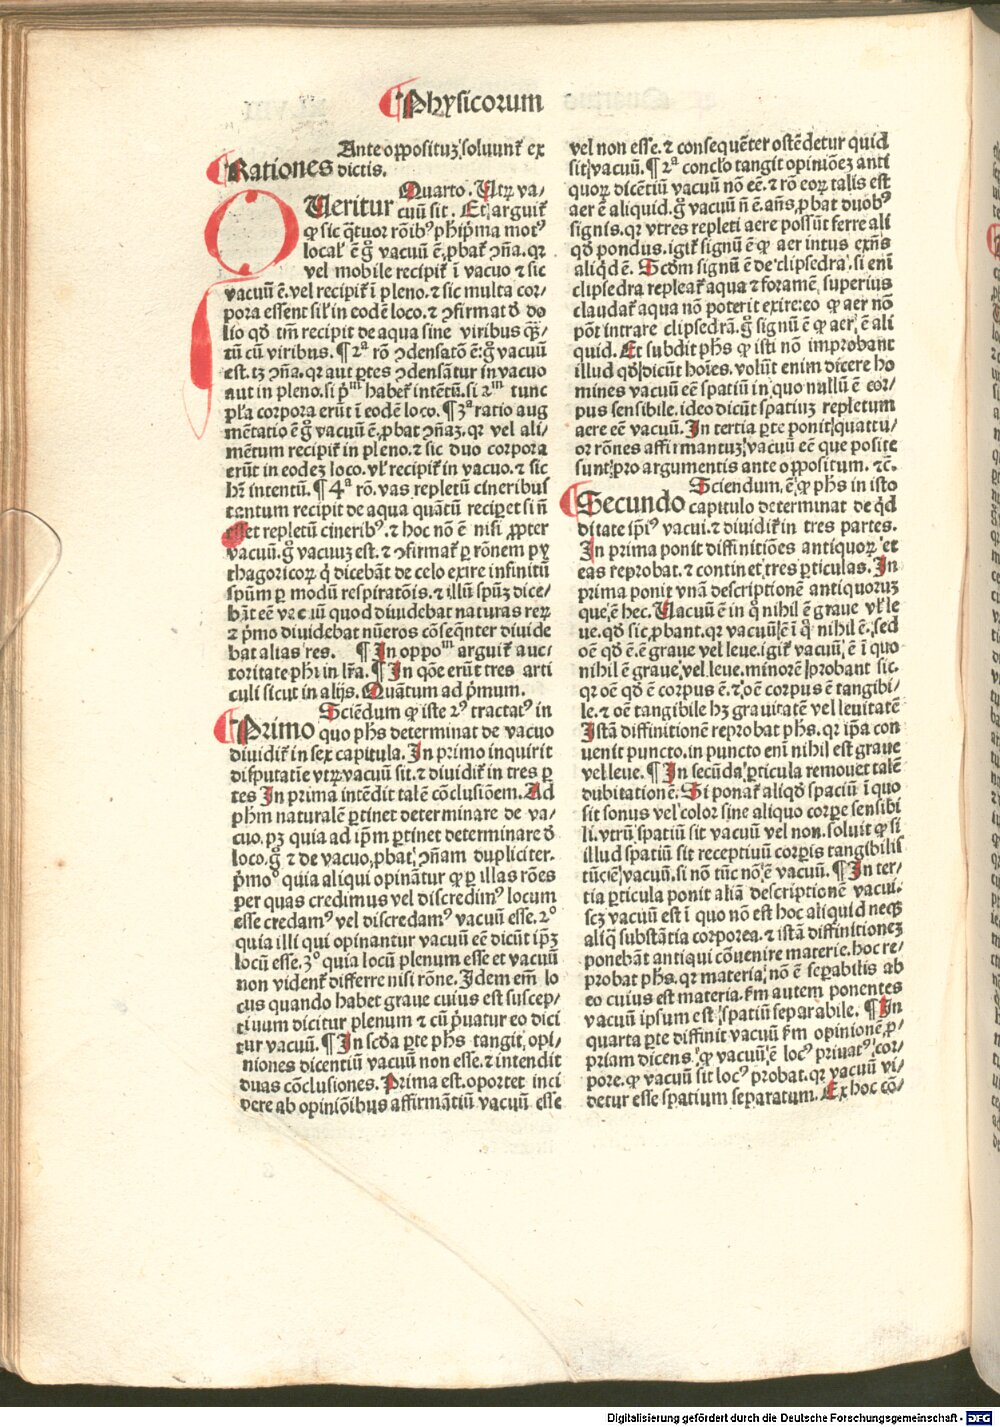 Physicorum
Rationes Ante opposituʒ soluunt᷑ ex
dictis.
Queritur Quarto. Utꝝ va⸗
cuū sit. Et arguit᷑
ꝙ sic q̄tuor rōibꝰ phiꝓ̄ma motꝰ
local᷑ ē gͦ vacuū ē, ꝓbat᷑ ꝯña. qꝛ
vel mobile recipit᷑ ī vacuo ⁊ sic
vacuū ē. vel recipit᷑ ī pleno. ⁊ sic multa cor⸗
pora essent sil᷑ in eodē loco. ⁊ ꝯfirmat᷑ ꝺ do
lio qꝺ tm̄ recipit de aqua sine viribus q̄ꝫ⸗
tū cū viribus. ¶ 2ª rō ꝯdensatō ē: gͦ vacuū
est. tꝫ ꝯña. qꝛ aut ꝑtes ꝯdensāt᷑ur in vacuo
aut in pleno. si p̄ᵐ habet᷑ intētū. si 2ᵐ tunc
pl᷑a corpora erūt ī eodē loco. ¶ 3ª ratio aug
mētatio ē gͦ vacuū ē, ꝓbat ꝯñaꝫ. qꝛ vel ali⸗
mētum recipit᷑ in pleno. ⁊ sic duo corpora
erūt in eodeꝫ loco. vl᷑ recipit᷑ in vacuo. ⁊ sic
hꝫ intentū. ¶ 4ª rō. vas repletū cineribus
tantum recipit de aqua quātū reciꝑet si ñ
esset repletū cineribꝰ. ⁊ hoc nō ē nisi ꝓpter
vacuū. gͦ vacuuꝫ est. ⁊ ꝯfirmat᷑ ꝑ rōnem py
thagoricoꝝ q̇ dicebāt de celo exire infinitū
spūm ꝑ modū respiratōis. ⁊ illū spūꝫ dice⸗
bāt eē vacuū quod diuidebat naturas reꝝ
⁊ pͥmo diuidebat nūeros cōseq̄nter diuide
bat alias res. ¶ In oppoᵐ arguit᷑ auc⸗
toritate phi in lr̄a. ¶ In qōe erūt tres arti
culi sicut in alijs. Quātum ad pͥmum.
Primo Sciēdum ꝙ iste 2ꝰ tractatꝰ in
quo phs determinat de vacuo
diuidit᷑ in sex capitula. In primo inquirit
disputatiē vtꝝ vacuū sit. ⁊ diuidit᷑ in tres ꝑ
tes In prima intēdit talē cōclusiōem. Ad
phm̄ naturalē ꝑtinet determinare de va⸗
cuo. pꝫ quia ad ip̄m ꝑtinet determinare ꝺ
loco. gͦ ⁊ de vacuo, ꝓbat ꝯñam dupliciter.
pͥmo quia aliqui opināt᷑ur ꝙ ꝑ illas rōes
per quas credimus vel discredimꝰ locum
esse credamꝰ vel discredamꝰ vacuū esse. 2ͦ
quia illi qui opinantur vacuū eē dicūt ip̄ꝫ
locū esse. 3ͦ quia locū plenum esse et vacuū
non vident᷑ differre nisi rōne. Idem em̄ lo
cus quando habet graue cuius est suscep⸗
tiuum dicitur plenum ⁊ cū pͥuatur eo dici
tur vacuū. ¶ In scd̄a ꝑte phs tangit, opi⸗
niones dicentiū vacuū non esse. ⁊ intendit
duas cōclusiones. Prima est. oportet inci
dere ab opiniōibus affirmātiū vacuū esse
vel non esse. ⁊ consequēter ostēdetur quid
sit vacuū. ¶ 2ª conclō tangit opiniōeꝫ anti
quoꝝ dicētiū vacuū nō eē. ⁊ rō eoꝝ talis est
aer ē aliquid. gͦ vacuū ñ ē. añs, ꝓbat duobꝰ
signis. qꝛ vtres repleti aere possūt ferre ali
qꝺ pondus. igit᷑ signū ē ꝙ aer intus exñs
aliqd̄ ē. Scdm̄ signū ē de clipsedra. si eni
clipsedra repleat᷑ aqua ⁊ foramē, superius
claudat᷑ aqua nō poterit exire: eo ꝙ aer nō
pōt intrare clipsedrā. gͦ signū ē ꝙ aer ē ali
quid. Et subdit phs ꝙ isti nō improbant
illud qꝺ dicūt hoīes. volūt enim dicere ho
mines vacuū eē spatiū in quo nullū ē cor⸗
pus sensibile. ideo dicūt spatiuꝫ repletum
aere eē vacuū. In tertia ꝑte ponit quattu⸗
or rōnes affirmantuꝫ vacuū eē que posite
sunt pro argumentis ante oppositum. ⁊c̄.
Secundo Sciendum, ē ꝙ phs in isto
capitulo determinat de q̇d
ditate ip̄i vacui. ⁊ diuidit᷑ in tres partes.
In prima ponit diffinitiōes antiquoꝝ et
eas reprobat. ⁊ continet tres ꝑticulas. In
prima ponit vnā descriptionē antiquoruꝫ
que ē hec. Vacuū ē in q̊ nihil ē graue vl᷑ le
ue. qꝺ sic ꝓbant. qꝛ vacuū ē i q̊ nihil ē. sed
oē qꝺ ē. ē graue vel leue. igit᷑ vacuū ē i quo
nihil ē graue vel leue. minorē probant sic.
qꝛ oē qꝺ ē corpus ē. ⁊ oē corpus ē tangibi⸗
le. ⁊ oē tangibile hꝫ grauitatē vel leuitatē
Istā diffinitionē reprobat phs. qꝛ ip̄a con
uenit puncto. in puncto eni nihil est graue
vel leue. ¶ In secūda ꝑticula remouet talē
dubitationē. Si ponat᷑ aliqꝺ spaciū i quo
sit sonus vel color sine aliquo corꝑe sensibi
li. vtrū spatiū sit vacuū vel non. soluit ꝙ si
illud spatiū sit receptiuū corꝑis tangibilis
tūc ē vacuū. si nō tūc nō ē vacuū. ¶ In ter⸗
tia ꝑticula ponit aliā descriptionē vacui.
scꝫ vacuū est i quo nō est hoc aliquid neqꝫ
aliq̄ substātia corporea. ⁊ istā diffinitioneꝫ
ponebāt antiqui cōuenire materie. hoc re⸗
probat phs. qꝛ materia nō ē seꝑabilis ab
eo cuius est materia. fm̄ autem ponentes
vacuū ipsum est spatiū separabile. ¶ In
quarta ꝑte diffinit vacuū fm̄ opinionē, ꝓ⸗
priam dicens, ꝙ vacuū ē locꝰ priuatꝰ cor⸗
pore. ꝙ vacuū sit locꝰ probat. qꝛ vacuū vi⸗
detur esse spatium separatum. Ex hoc cō⸗
Digitalisierung gefördert durch die Deutsche Forschungsgemeinschaft - DFG